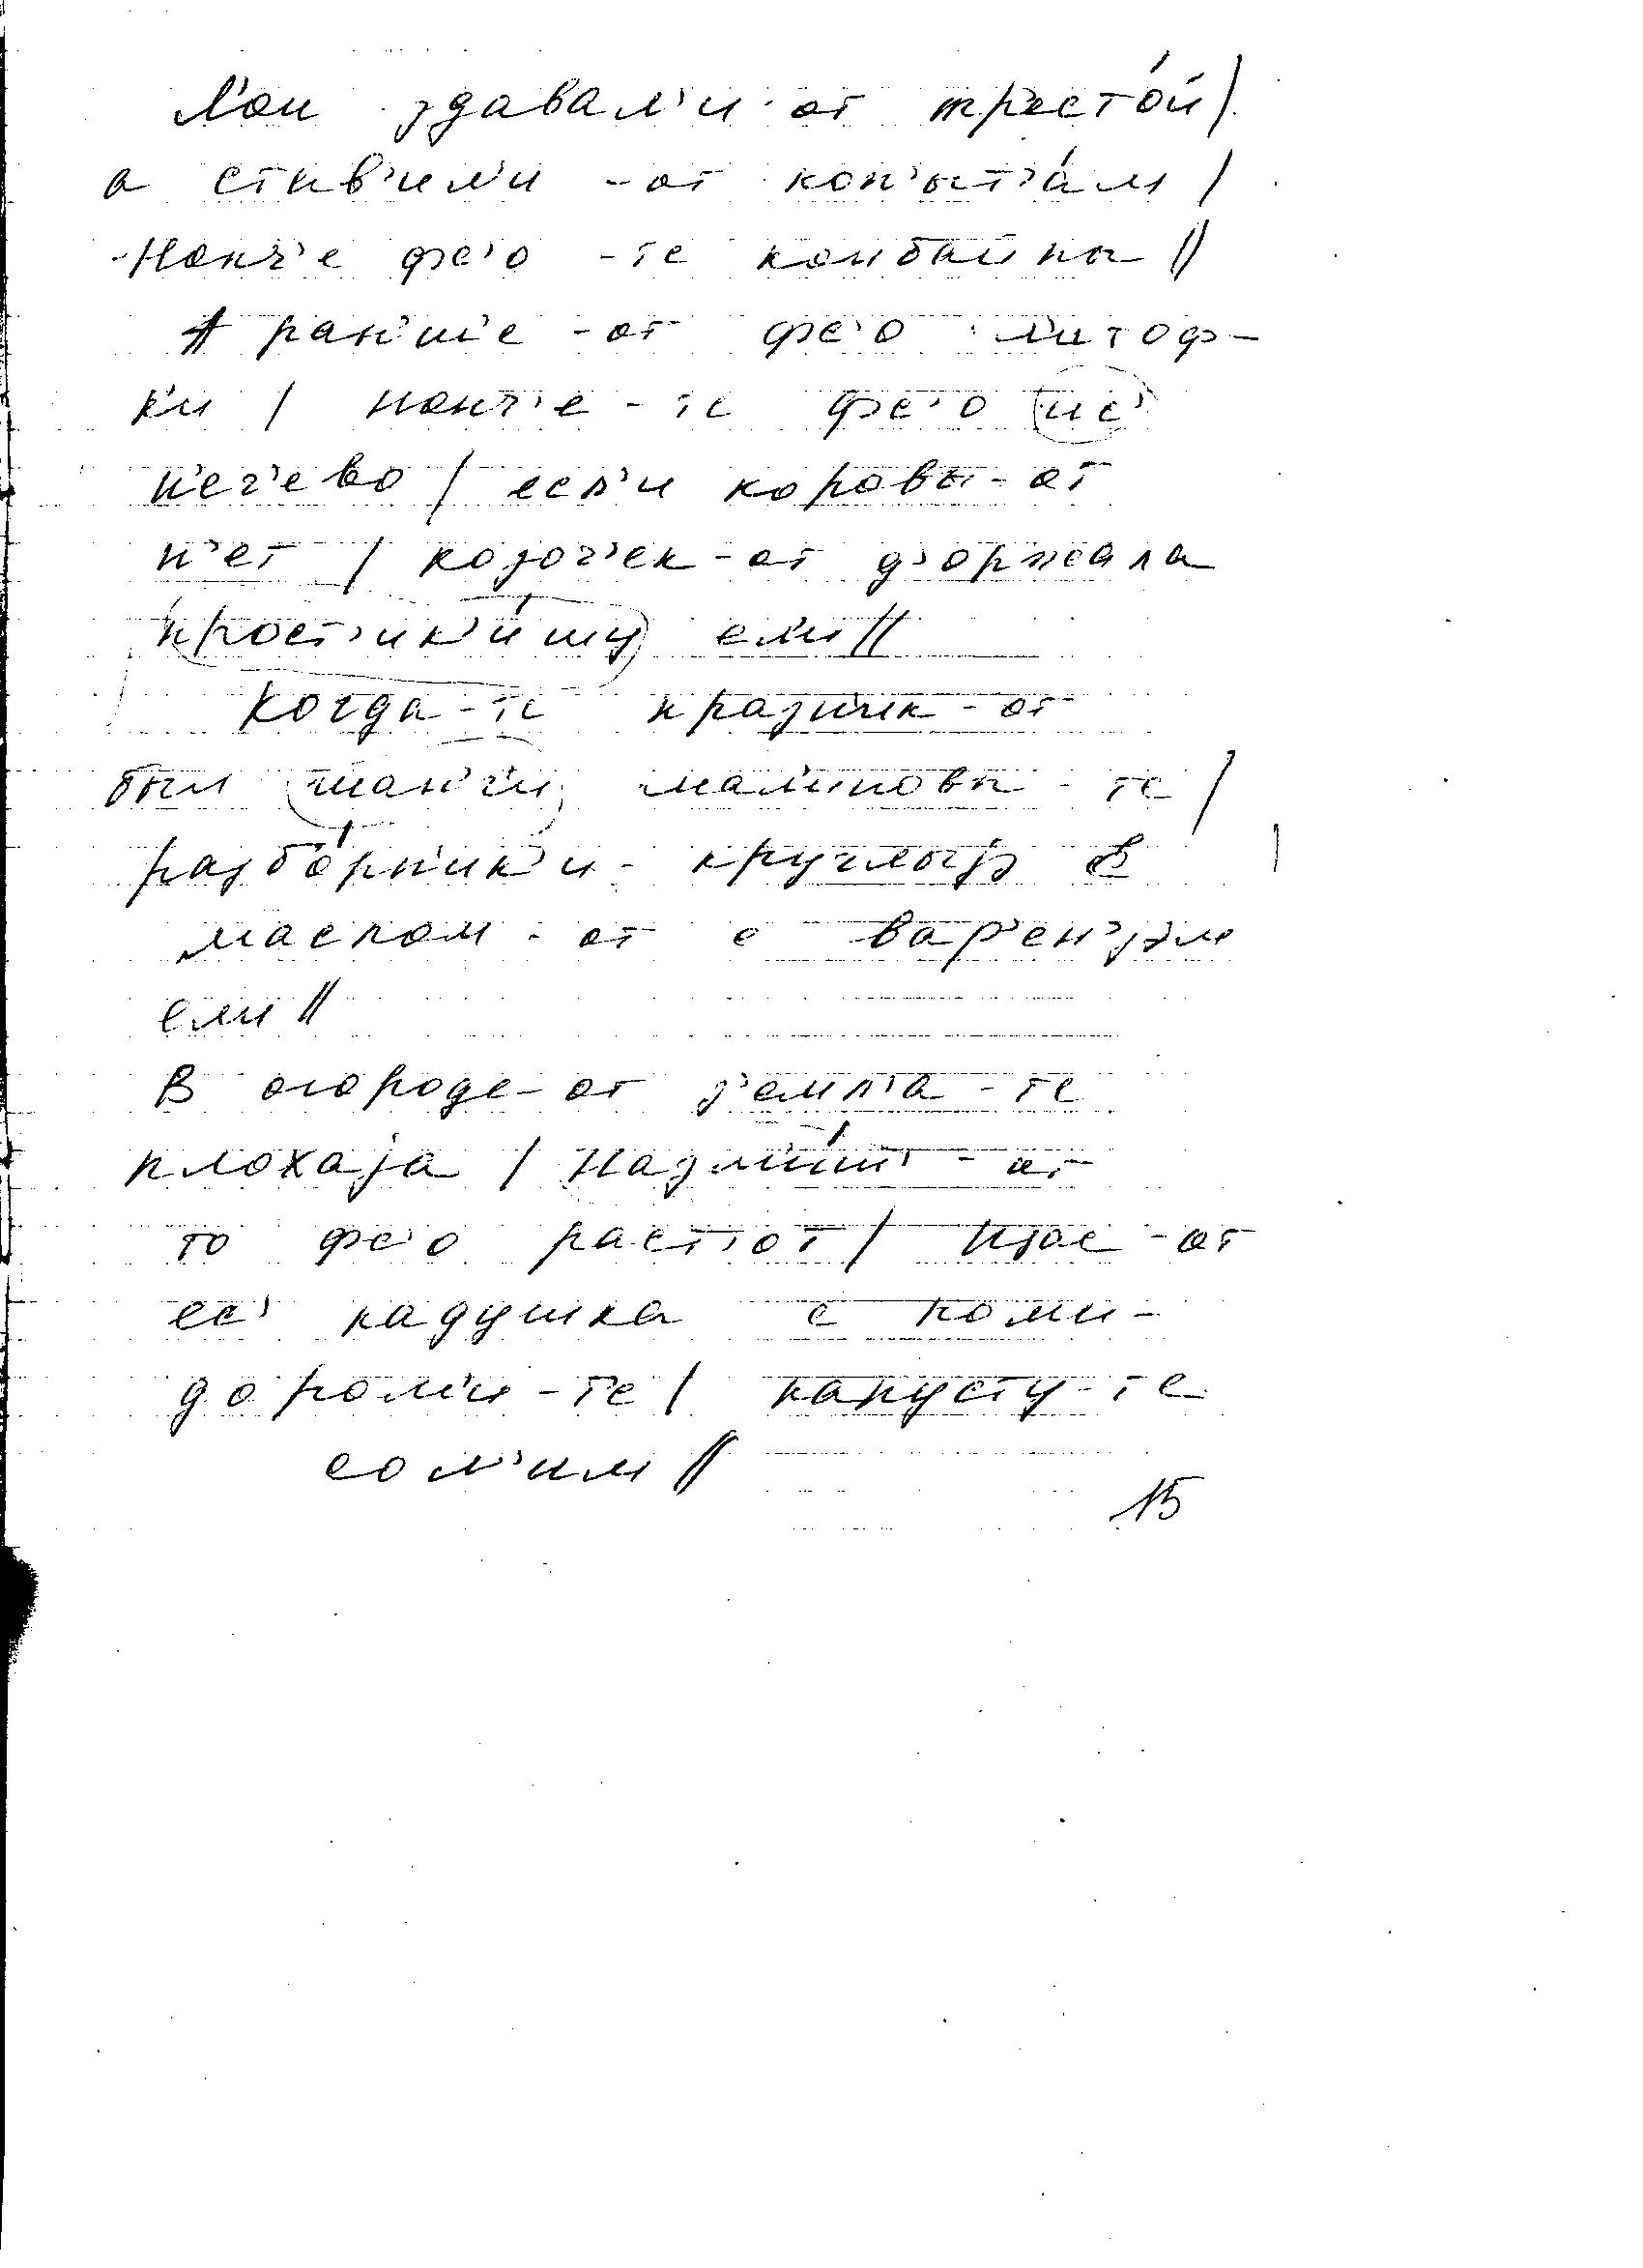 Л'он здавал'и-от т'рестой /
а ставил'и -от коп'ыт'ам /
Нонч'е ф'с'о -те комбайны //
А ран'ше -от ф'с'о литоф-
к'и / нонч'е-те ф'с'о ис
н'еч'ево / есл'и коровы-от
н'ет / козоч'ек-от д'оржала
прост'ик'ишу ели //
Когда-те празник-от
был шан'ги малиновы-те /
разборн'ик'и- круглыjэ с
маслом-от с вар'ен'jэм
ели //
В огороде-от з'емл'а-те
плохаjа / Назмит'-от
то ф'с'о раст'от / Щас-от
ес' кадушка с поми-
дорам'и-те / капусту-те
сол'им //
15